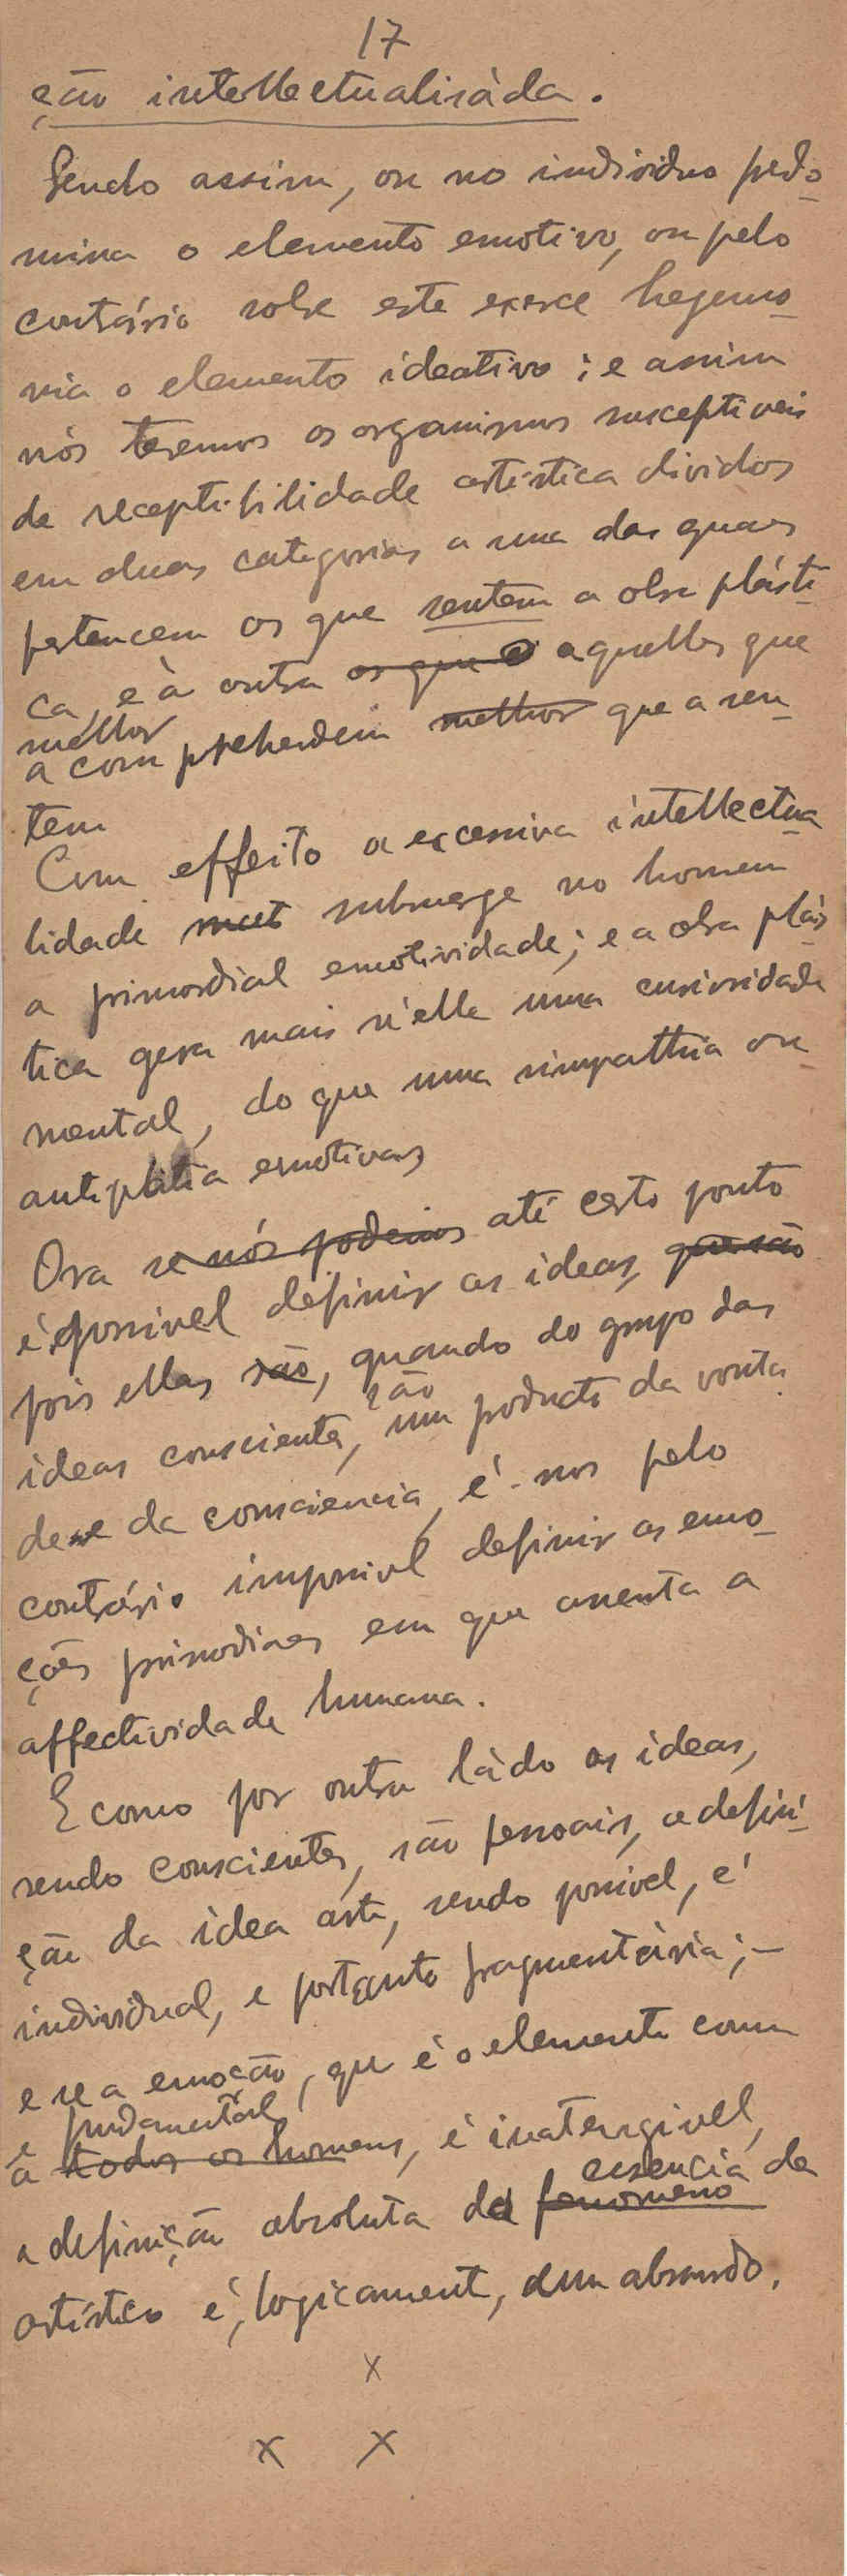 17
ção intellectualisàda.
Sendo assim, ou no individuo predo
mina o elemento emotivo, ou pelo
contrário sobre este exerce hegemo
nia o elemento ideativo; e assim
nós teremos os organismos susceptiveis
de receptibilidade artistica dividos
em duas categorias a uma das quaes
pertencem os que sentem a obra plásti
ca, e à outra os que aquelles que
melhor
a comprehendem melhor que a sen
tem
Com effeito a excessiva intellectua
lidade submerge no homem
a primordial emotividade; e a obra plás
tica gera mais n'elle uma curiosidade
mental, do que uma simpathia ou
antipatia emotivas
Ora se nós podemos até certo ponto
é possivel definir as ideas, que são
pois ellas são, quando do grupo das
são
ideas conscientes, um producto da vonta
de e da consciencia, é-nos pelo
contrário impossivel definir as emo
ções primordiaes em que assenta a
affectividade humana.
E como por outro làdo as ideas,
sendo conscientes, são pessoais, a defini
ção da idea arte, sendo possivel, é
individual, e portanto fragmentária; –
e se a emoção, que é o elemento comum
e fundamental
a todos os homens, é inatengivel,
essencia da
a definição absoluta do fenomeno
artistico é, logicament, um absurdo.
x
x x